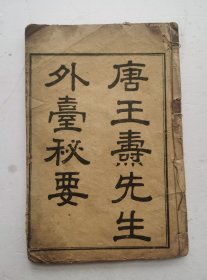 唐王燾先生
外臺秘要